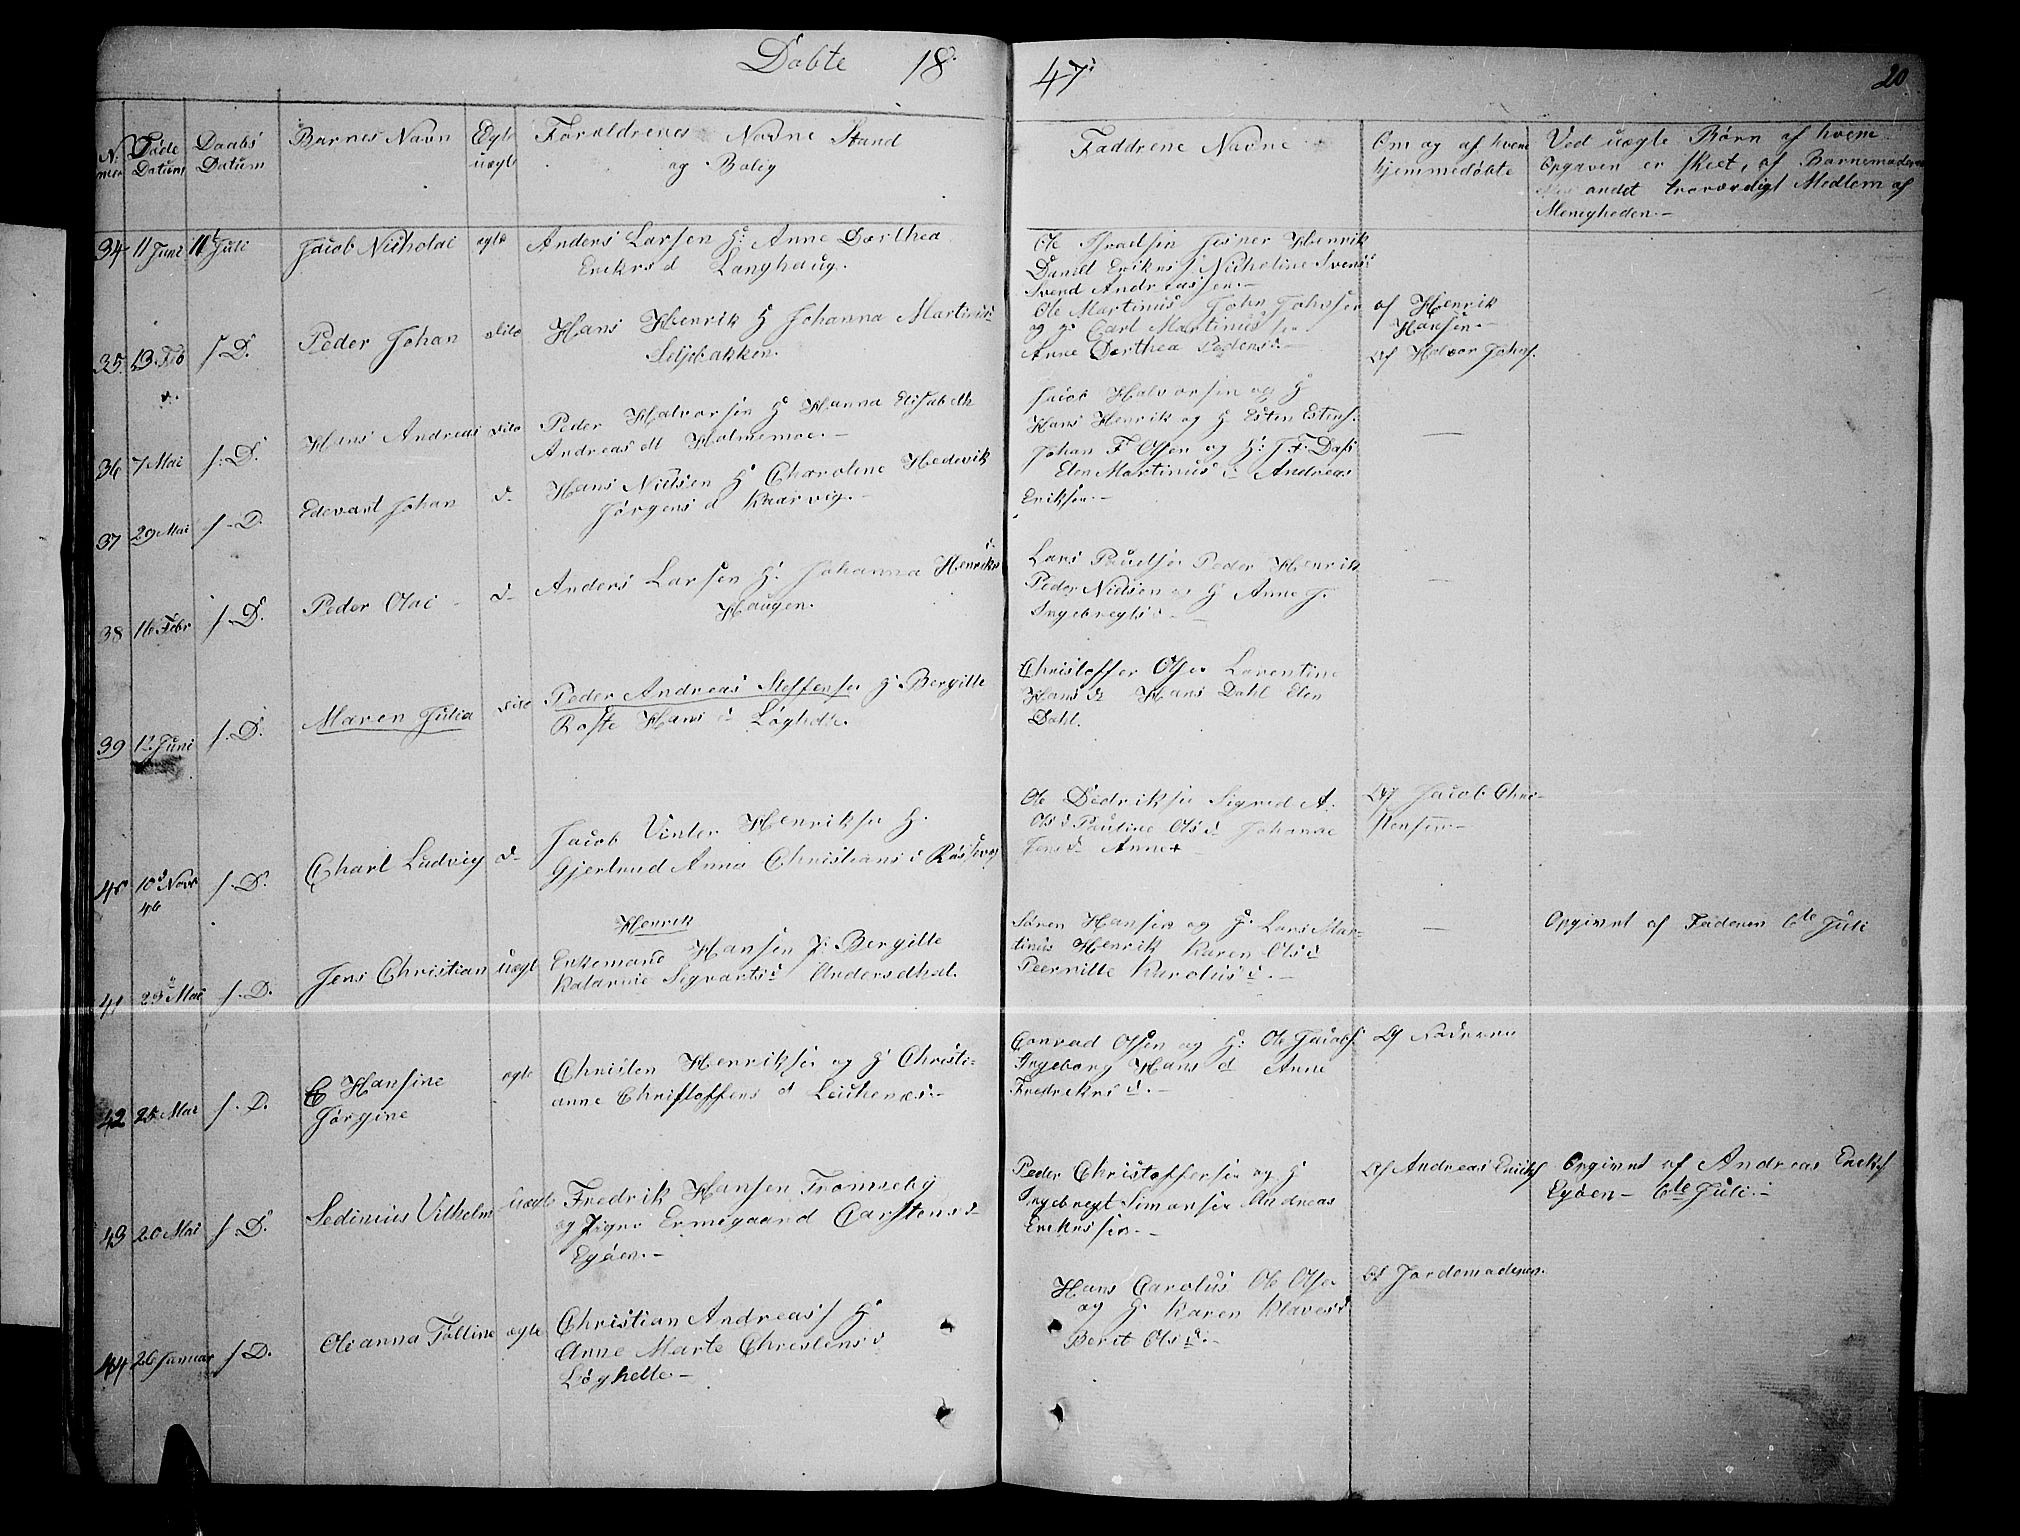 Døbte 18
47
20
N.
Føde Datum
Daabs Datum
Barnes Navn
Egte uægt
Foraldrenes Navne Stand
og Bolig
Faddrene Navne
Om og af hvem
hjemmedøbte
Ved uægte Børn af hvem
Opgaven er skeet, af Barnemoderen
andet troværdigt Medlem af
Menigheden.-
34 11 Juni 11 Juli Jacob Nicholai egte Anders Larsen H: Anne Dorthea
Eriksd Langhaug.
Ole Jesper Henrik
Daniel Eriks Nicholine Svens
Svend Andreassen.-
35. 13. Feb s. D. Peder Johan dito Hans Henrik H Johanna Martinus
Seljebakken.
Ole Martinus John Johnsen
og H. Carl Martinus
Anne Dorthea Peders d.-
af Henrik
Hansen.-
Af Halvor Johns.
36 7 Mai s. D. Hans Andreas dito Peder Halvorsen H Hanna Elisabeth
Andreas dt Holmemoe.-
Jacob Halvorsen og H
Hans Henrik og H Esten Estens.
-
37 29 Mai s. D. Edevart Johan d- Hans Nielsen H Charoline Hedevik
Jørgens d Kaarvig.-
Johan F Olsen og H: J F. Dass
Elen Martinus d Andreas
Eriksen.-
38 16 Febr s. D. Peder Olai d- Anders Larsen H. Johanna Henriks d
Haugen.
Lars Peder Henrik
Peder Nielsen og H Anne J.
Ingebregts d -
-
39 12 Juni s. D. Maren Julia dito Peder Andreas Steffensen H Bergitte
Hans d Løghelle.
Christoffer Olsen Larentine
Hans d Hans Dahl Elen
Dahl.
40 10 Novr 46 s. D. Charl Ludvig d- Jacob Vinter Henriksen H.
Gjertrud Anna Christians d Røssevog
Ole Didriksen Sigred A.
Ols d Pauline Ols d Johanne
Jens d Anne
Af Jacob Chri-
stensen.-
41 29 Mai s. D. Jens Christian uægt Henrik
Enkemand Hansen P. Bergitte
Katarine Sigvarts d Andersdhal.
Søren Hansen og H. Lars Mar-
tinus Henrik Karen Ols d
Peernille Karolus d.-
-
Opgivnt af Faderen 6te Juli
42 25 Mai s. D. Hansine
Jørgine
egte Christen Henriksen og H Christi-
anne Christoffers d Leuthenæs.-
Conrad Olsen og H: Ole Jacobs.
Ingeborg Hans d Anne
Fredriks d.-
Af Faderen
43 20 Mai s. D. Sedinius Vilhelm uægte Fredrik Hansen Tromseby
og Pigen Ermegaard Carstens d
Egøen.-
Peder Christoffersen og H
Ingebregt Simonsen Andreas
Erikssen.-
Af Andreas Eriks
Opgivnt af Andreas Eriks
Egøen - 6te Juli.-
44 26 Januar s. D. Oleanna Tølline ægte Christian Andreas s H
Anne Marte Christens d
Løghelle.-
Hans Carolus Ole Olsen
og H. Karen Klaves d
Beret Ols d.-
Af Jordemoderen.